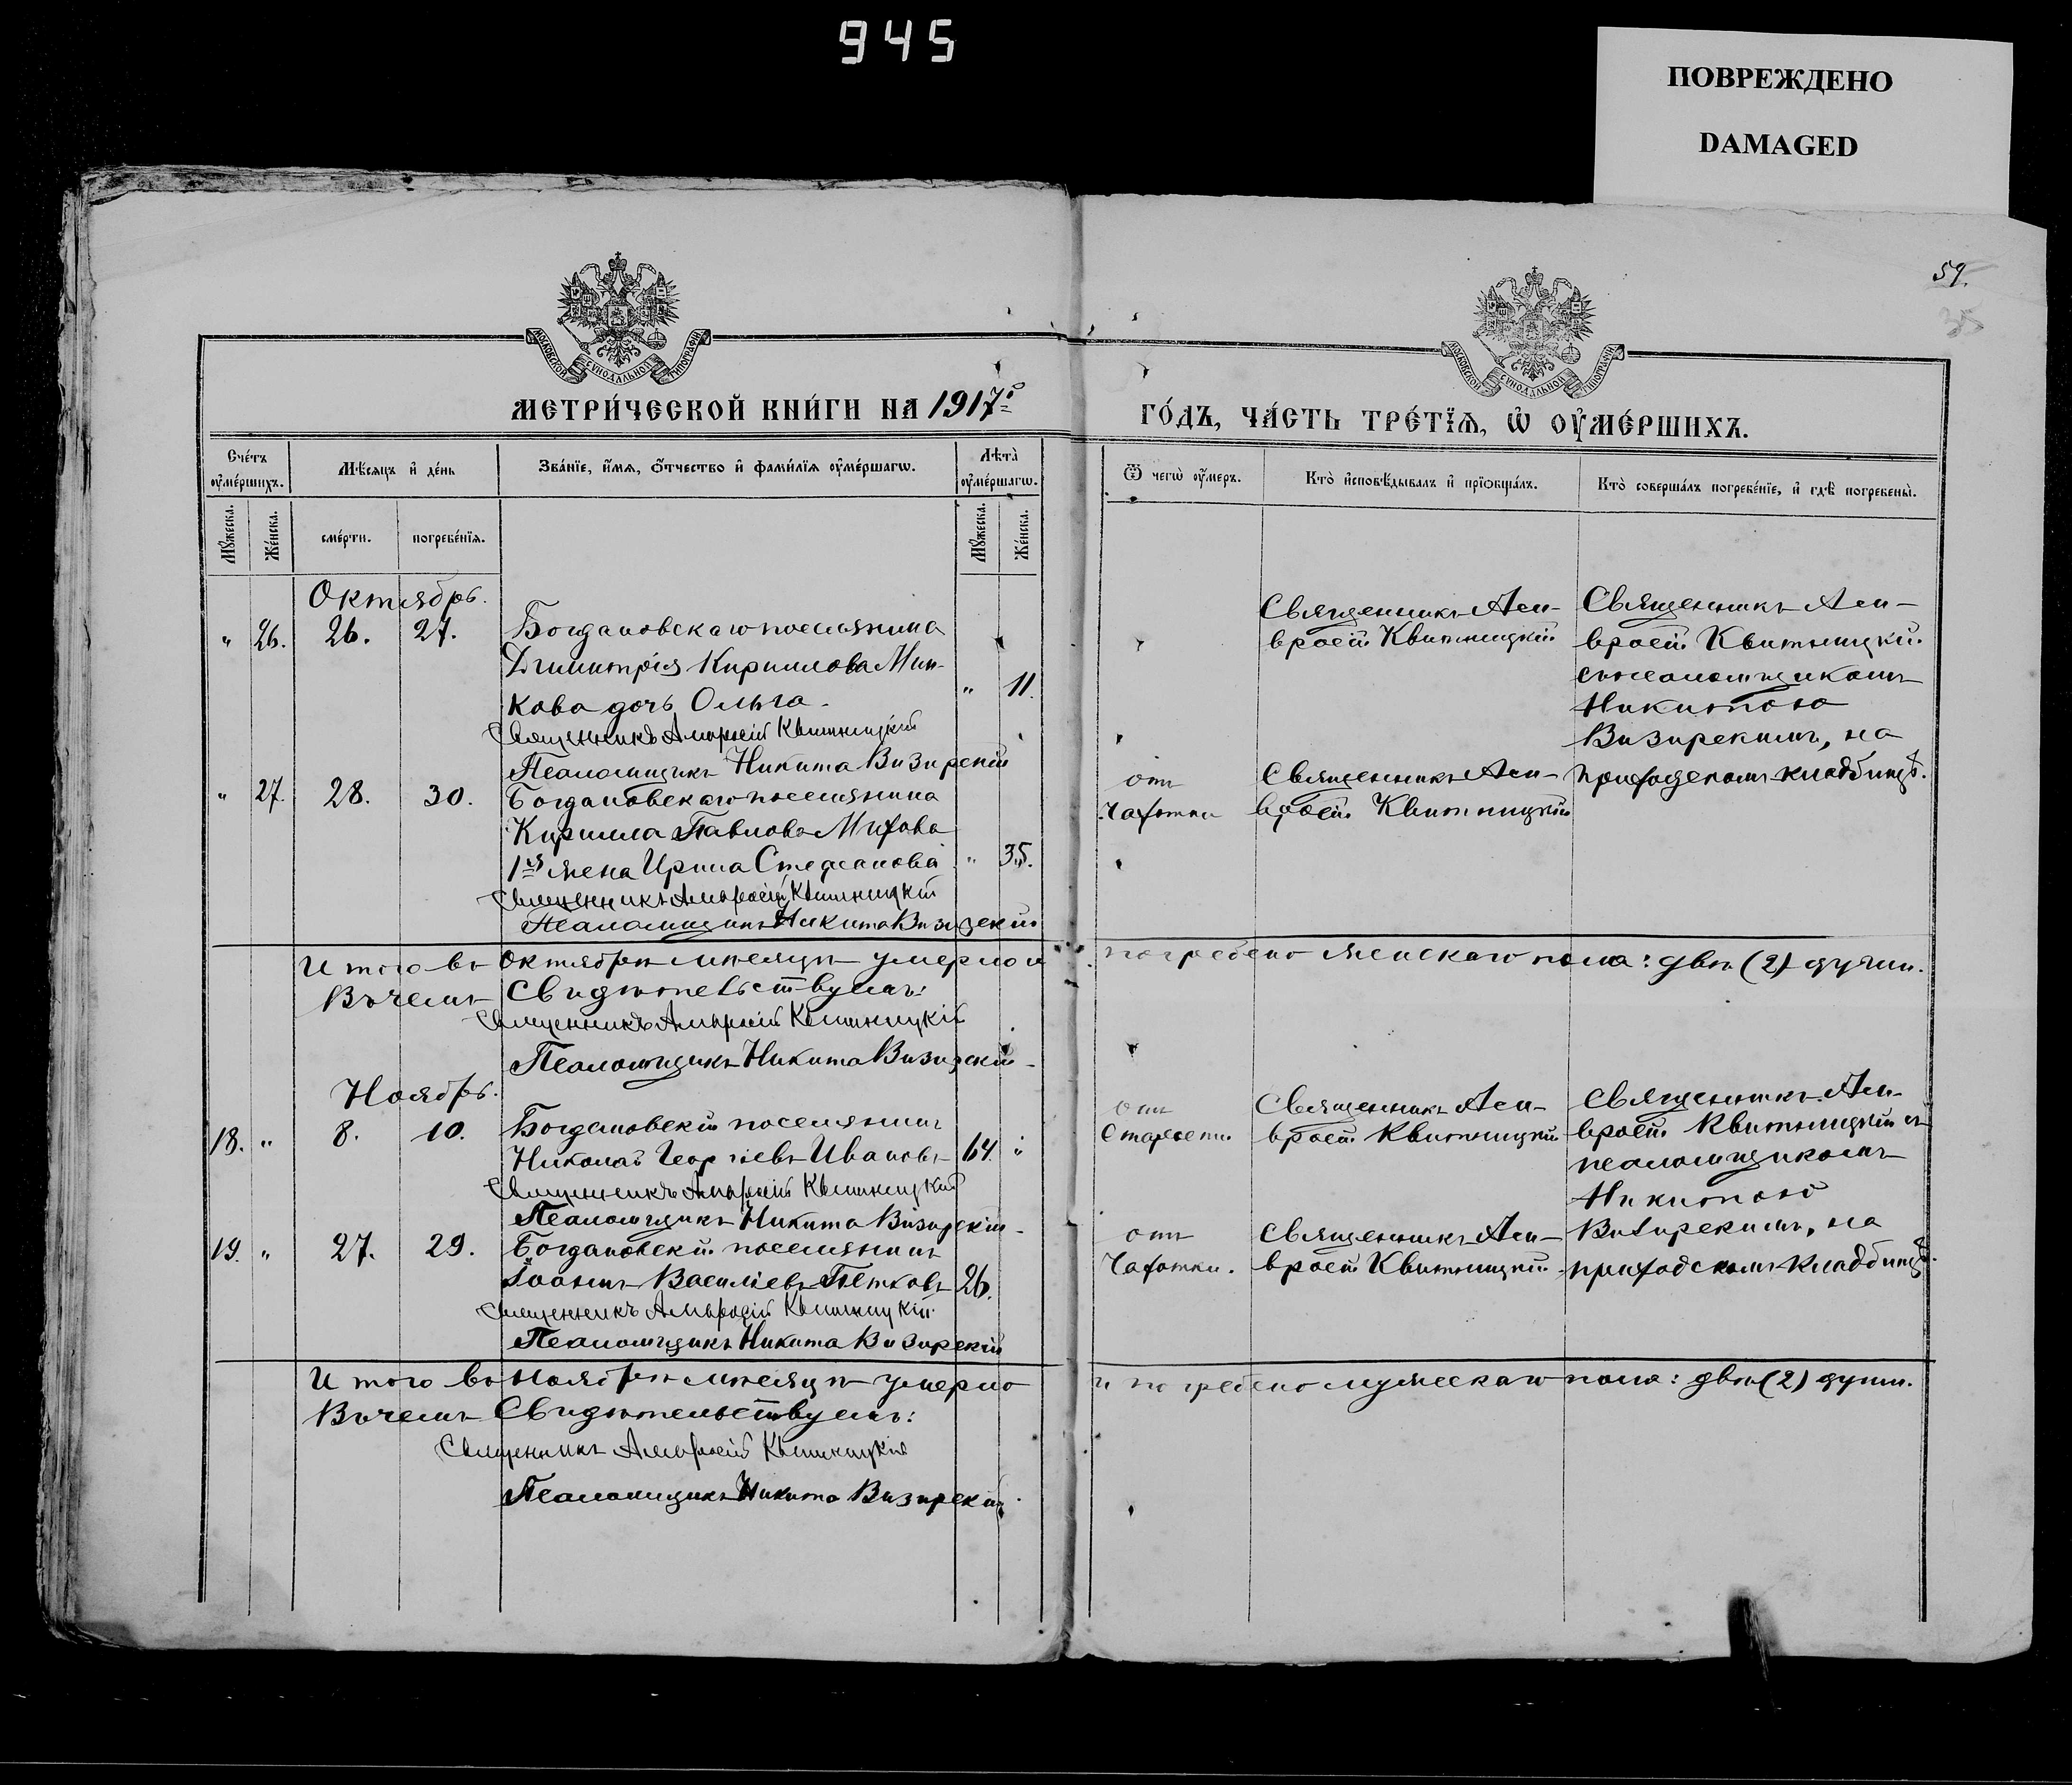 945
ПОВРЕЖДЕНО
DAMAGED
59.
МОСКОВСКОЙ СѴНОДАЛЬНОЙ ТИПОГРАФІИ
МОСКОВСКОЙ СѴНОДАЛЬНОЙ ТИПОГРАФІИ
МЕТРИ́ЧЕСКОЙ КНИ́ГИ НА 1917й
ГО́ДЪ, ЧА́СТЬ ТРЕ́ТЇѦ, Ѡ҆ ОУ҆МЕ́РШИХЪ.
Сче́тъ оу҆ме́ршихъ.
Мѣ́сяцъ и҆ де́нь
Зва́нїе, и҆́мѧ, ѻ҆́тчество и҆ фами́лїѧ оу҆ме́ршагѡ.
Лѣ́та оу҆ме́ршагѡ.
Ѿ чегѡ̀ оу҆́меръ.
Кто̀ и҆сповѣ́дывалъ и҆ прїѡбща́лъ.
Кто̀ соверша́лъ погребе́нїе, и҆ гдѣ̀ погребены̀.
Мꙋ́жеска.
Же́нска.
сме́рти.
погребе́нїѧ.
Мꙋ́жеска.
Же́нска.
Октябрь.
" 26. 26. 27. Богдановскаго поселянина
Димитрія Кириллова Мин-
кова дочь Ольга. " 11.
Священникъ Амвросій Квитницкій
Псаломщикъ Никита Визирскій
Священникъ Ам-
вросій Квитницкій
Священникъ Ам-
вросій Квитницкій
с псаломщикомъ
Никитою
Визирскимъ, на
приходскомъ кладбищѣ.
" 27. 28. 30. Богдановскаго поселянина
Кирилла Павлова
1я жена Ирина Стефанова " 35.
Священникъ Амвросій Квитницкій
Псаломщикъ Никита Визирскій
отъ
чахотки
Священникъ Ам-
вросій Квитницкій
Итого въ Октябрѣ мѣсяцѣ умерло и погребено женскаго пола: двѣ (2) души.
Въ чемъ свидѣтельствуемъ:
Священникъ Амвросій Квитницкій
Псаломщикъ Никита Визирскій
Ноябрь.
18. " 8. 10. Богдановскій поселянинъ
Николай Георгіевъ Ивановъ 64. "
Священникъ Амвросій Квитницкій
Псаломщикъ Никита Визирскій
отъ
старости
Священникъ Ам-
вросій Квитницкій
Священникъ Ам-
вросій Квитницкій съ
псаломщикомъ
Никитою
Визирскимъ, на
приходскомъ кладбищѣ.
19. " 27. 29. Богдановскій поселянинъ
Іоаннъ Василіевъ Петковъ 26.
Священникъ Амвросій Квитницкій
Псаломщикъ Никита Визирскій
отъ
чахотки.
Священникъ Ам-
вросій Квитницкій
Итого въ Ноябрѣ мѣсяцѣ умерло и погребено мужескаго пола: двѣ (2) души.
Въ чемъ свидѣтельствуемъ:
Священникъ Амвросій Квитницкій
Псаломщикъ Никита Визирскій